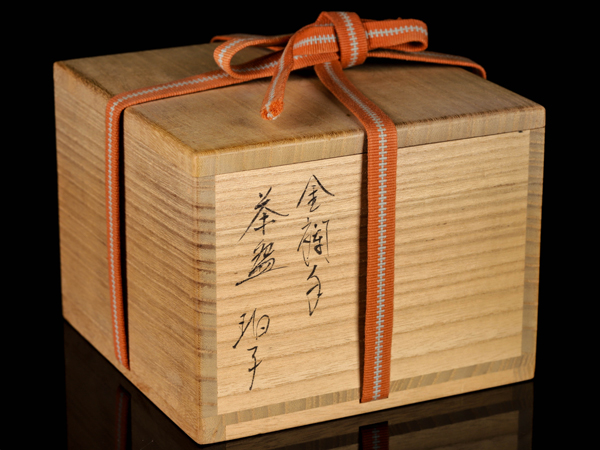 金襴手
茶盌 珀子